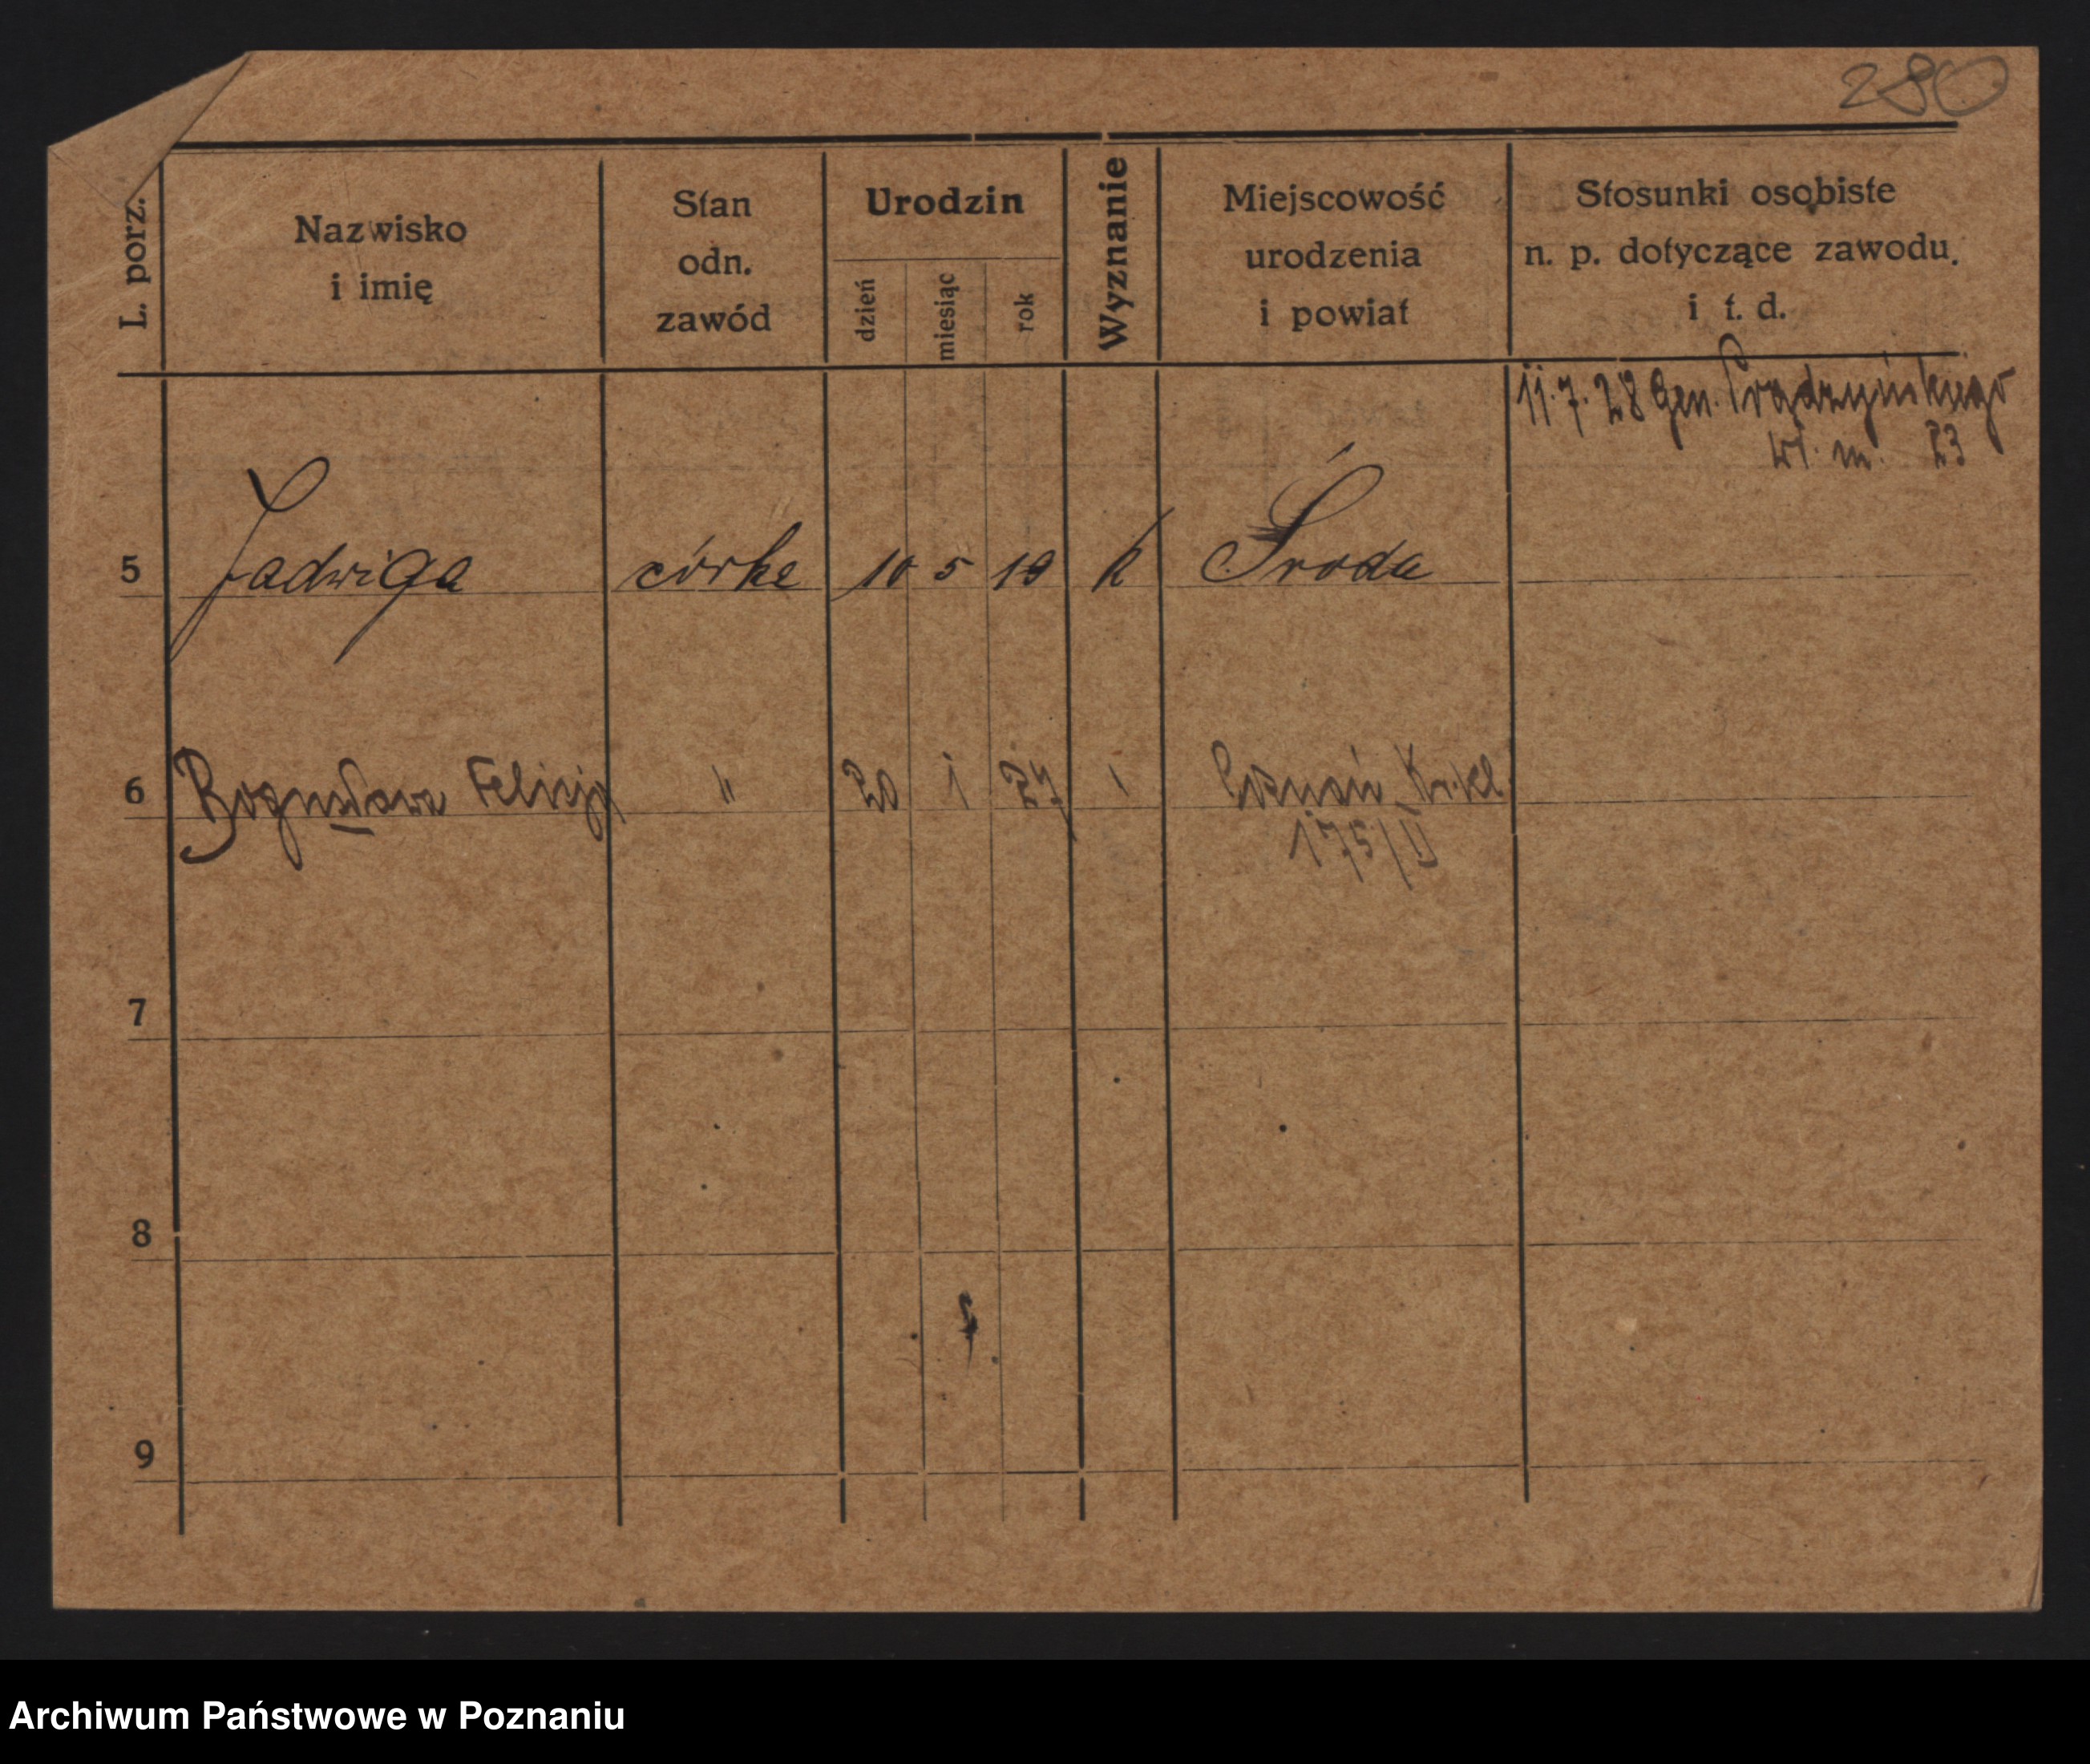 280
L. porz.
Nazwisko
i imię
Stan
odn.
zawód
Urodzin
dzień
miesiąc
rok
Wyznanie
Miejscowość
urodzenia
i powiat
Stosunki osobiste
n. p. dotyczące zawodu,
i t. d.
11.7.28 Gen. Prądzyńskiego
m. 23
5 Jadwiga córka 10 5 19 k Środa
6 Bogusława Felicja " 20 1 27 Poznań
175/II
7
8
9
Archiwum Państwowe w Poznaniu